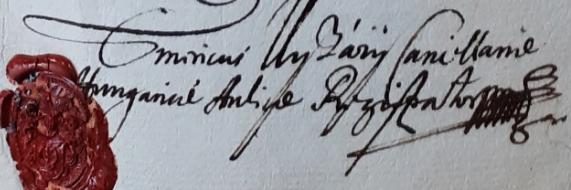 Emericus Uy Zárij Cancellariæ
Hungaricæ Aulicæ Registrator